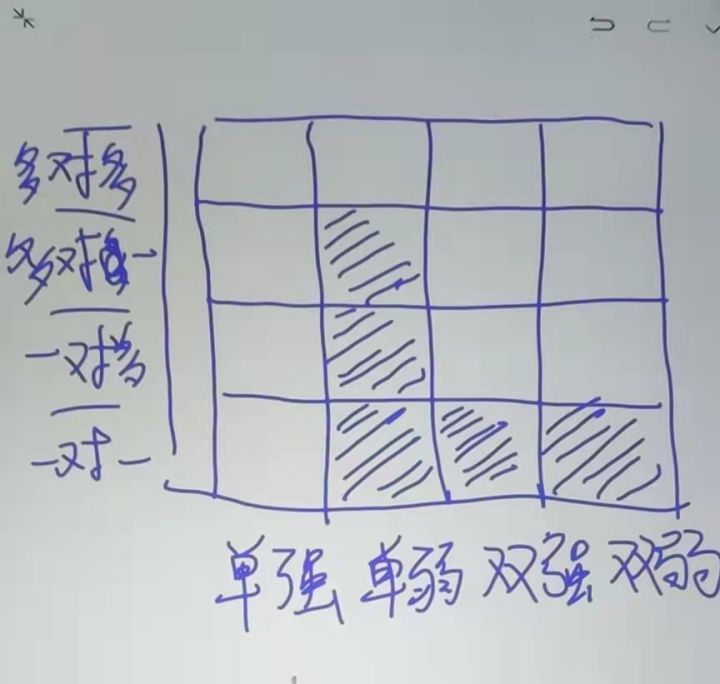 多对多
多对一
一对多
一对一
单强 单弱 双强 双弱